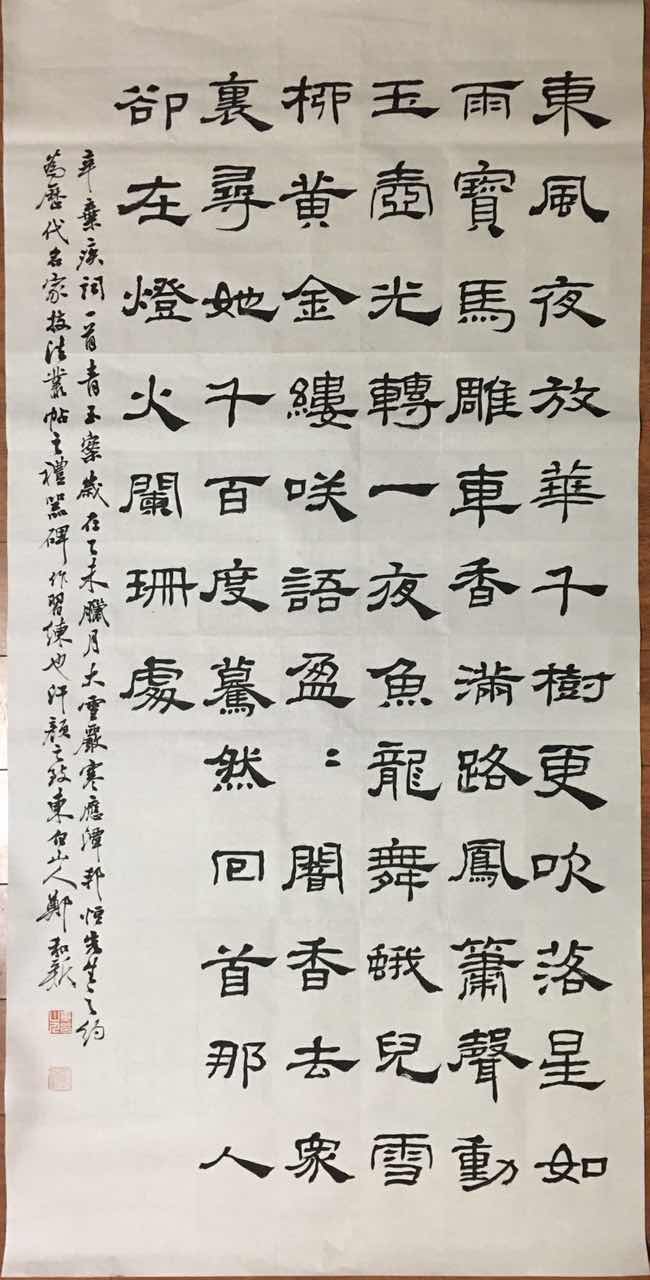 東風夜放華千樹更吹落星如
雨寶馬雕車香滿路鳳簫聲動
玉壺光轉一夜魚龍舞蛾兒雪
柳黄金縷咲語盈〻闇香去衆
裏尋她千百度驀然回首那人
卻在燈火闌珊處
辛棄疾詞一首青玉案歲在乙未臘月大雪嚴寒應潭邦恒先生之約
為歷代名家技法叢帖之禮器碑作習練也汗顏之致東白山人鄭